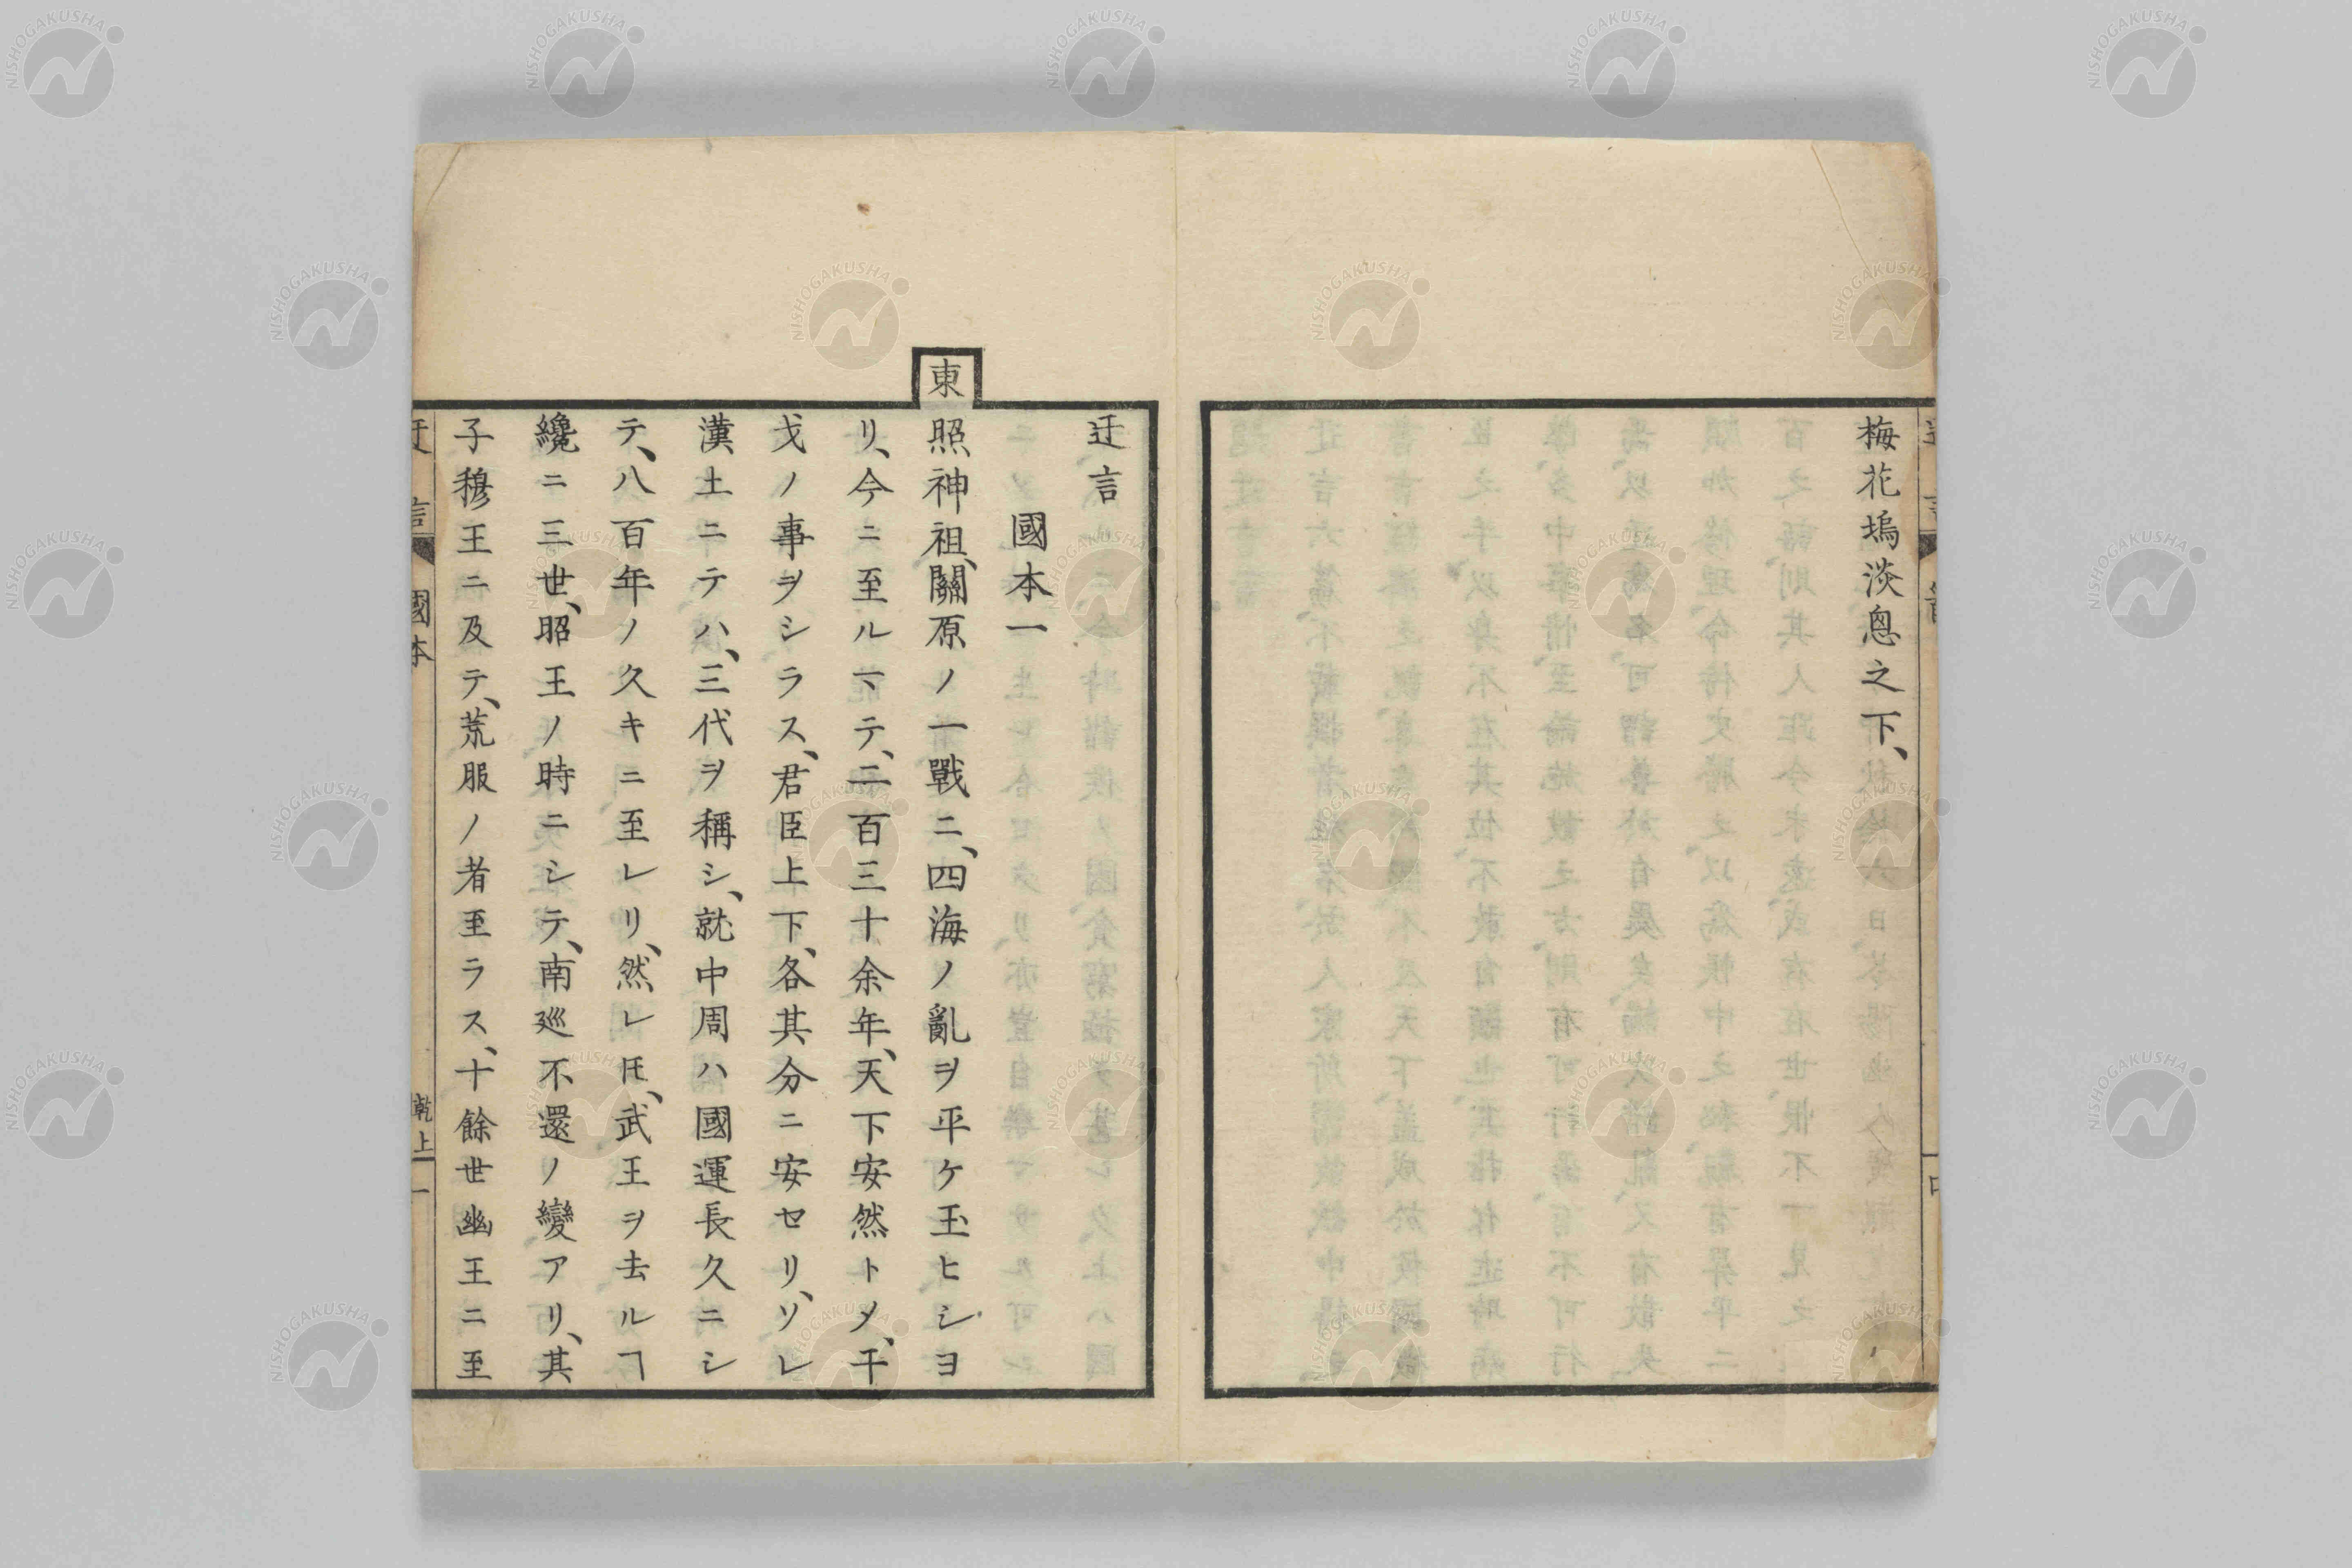 梅花塢淡囱之下、
迂言
國本一
東照神祖、關原ノ一戰ニ、四海ノ亂ヲ平ケ玉ヒショ
リ、今ニ至ルマテ、二百三十余年、天下安然トメ、干
戈ノ事ヲシラス、君臣上下、各其分ニ安セリ、ソレ
漢土ニテハ、三代ヲ稱シ、就中周ハ國運長久ニシ
テ、八百年ノ久キニ至レリ、然レ𪜈、武王ヲ去ルヿ
纔ニ三世、昭王ノ時ニシテ、南巡不還ノ變アリ、其
子穆王ニ及テ、荒服ノ者至ラス、十餘世幽王ニ至
迂言
國本
乾上
一
NISHOGAKUSHA